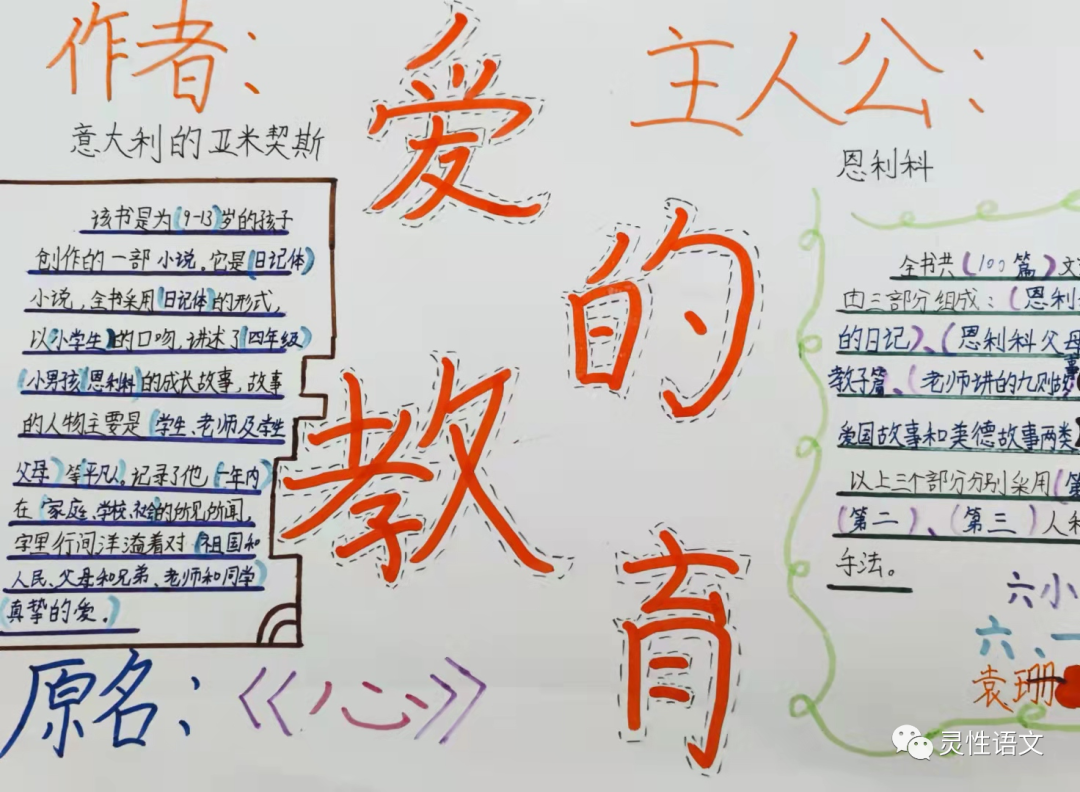 作者：
意大利的亚米契斯
该书是为(9-13)岁的孩子
创作的一部小说。它是(日记体)
小说，全书采用(日记体)的形式，
以(小学生)的口吻，讲述了(四年级)
(小男孩)(恩利科)的成长故事，故事
的人物主要是(学生、老师及学生
父母)等平凡人。记录了他(一年内)
在(家庭、学校、社会)的所见所闻，
字里行间洋溢着对(祖国和
人民、父母和兄弟、老师和同学
真挚的爱。)
原名：《心》
爱的教育
主人公：
恩利科
全书共(100篇)文
由三部分组成：(恩利
的日记)、(恩利科父母
教子篇、(老师讲的九则故事
爱国故事和美德故事两类)
以上三个部分分别采用(第
(第二)、(第三)人
手法。
六小
六、一
袁珊
灵性语文